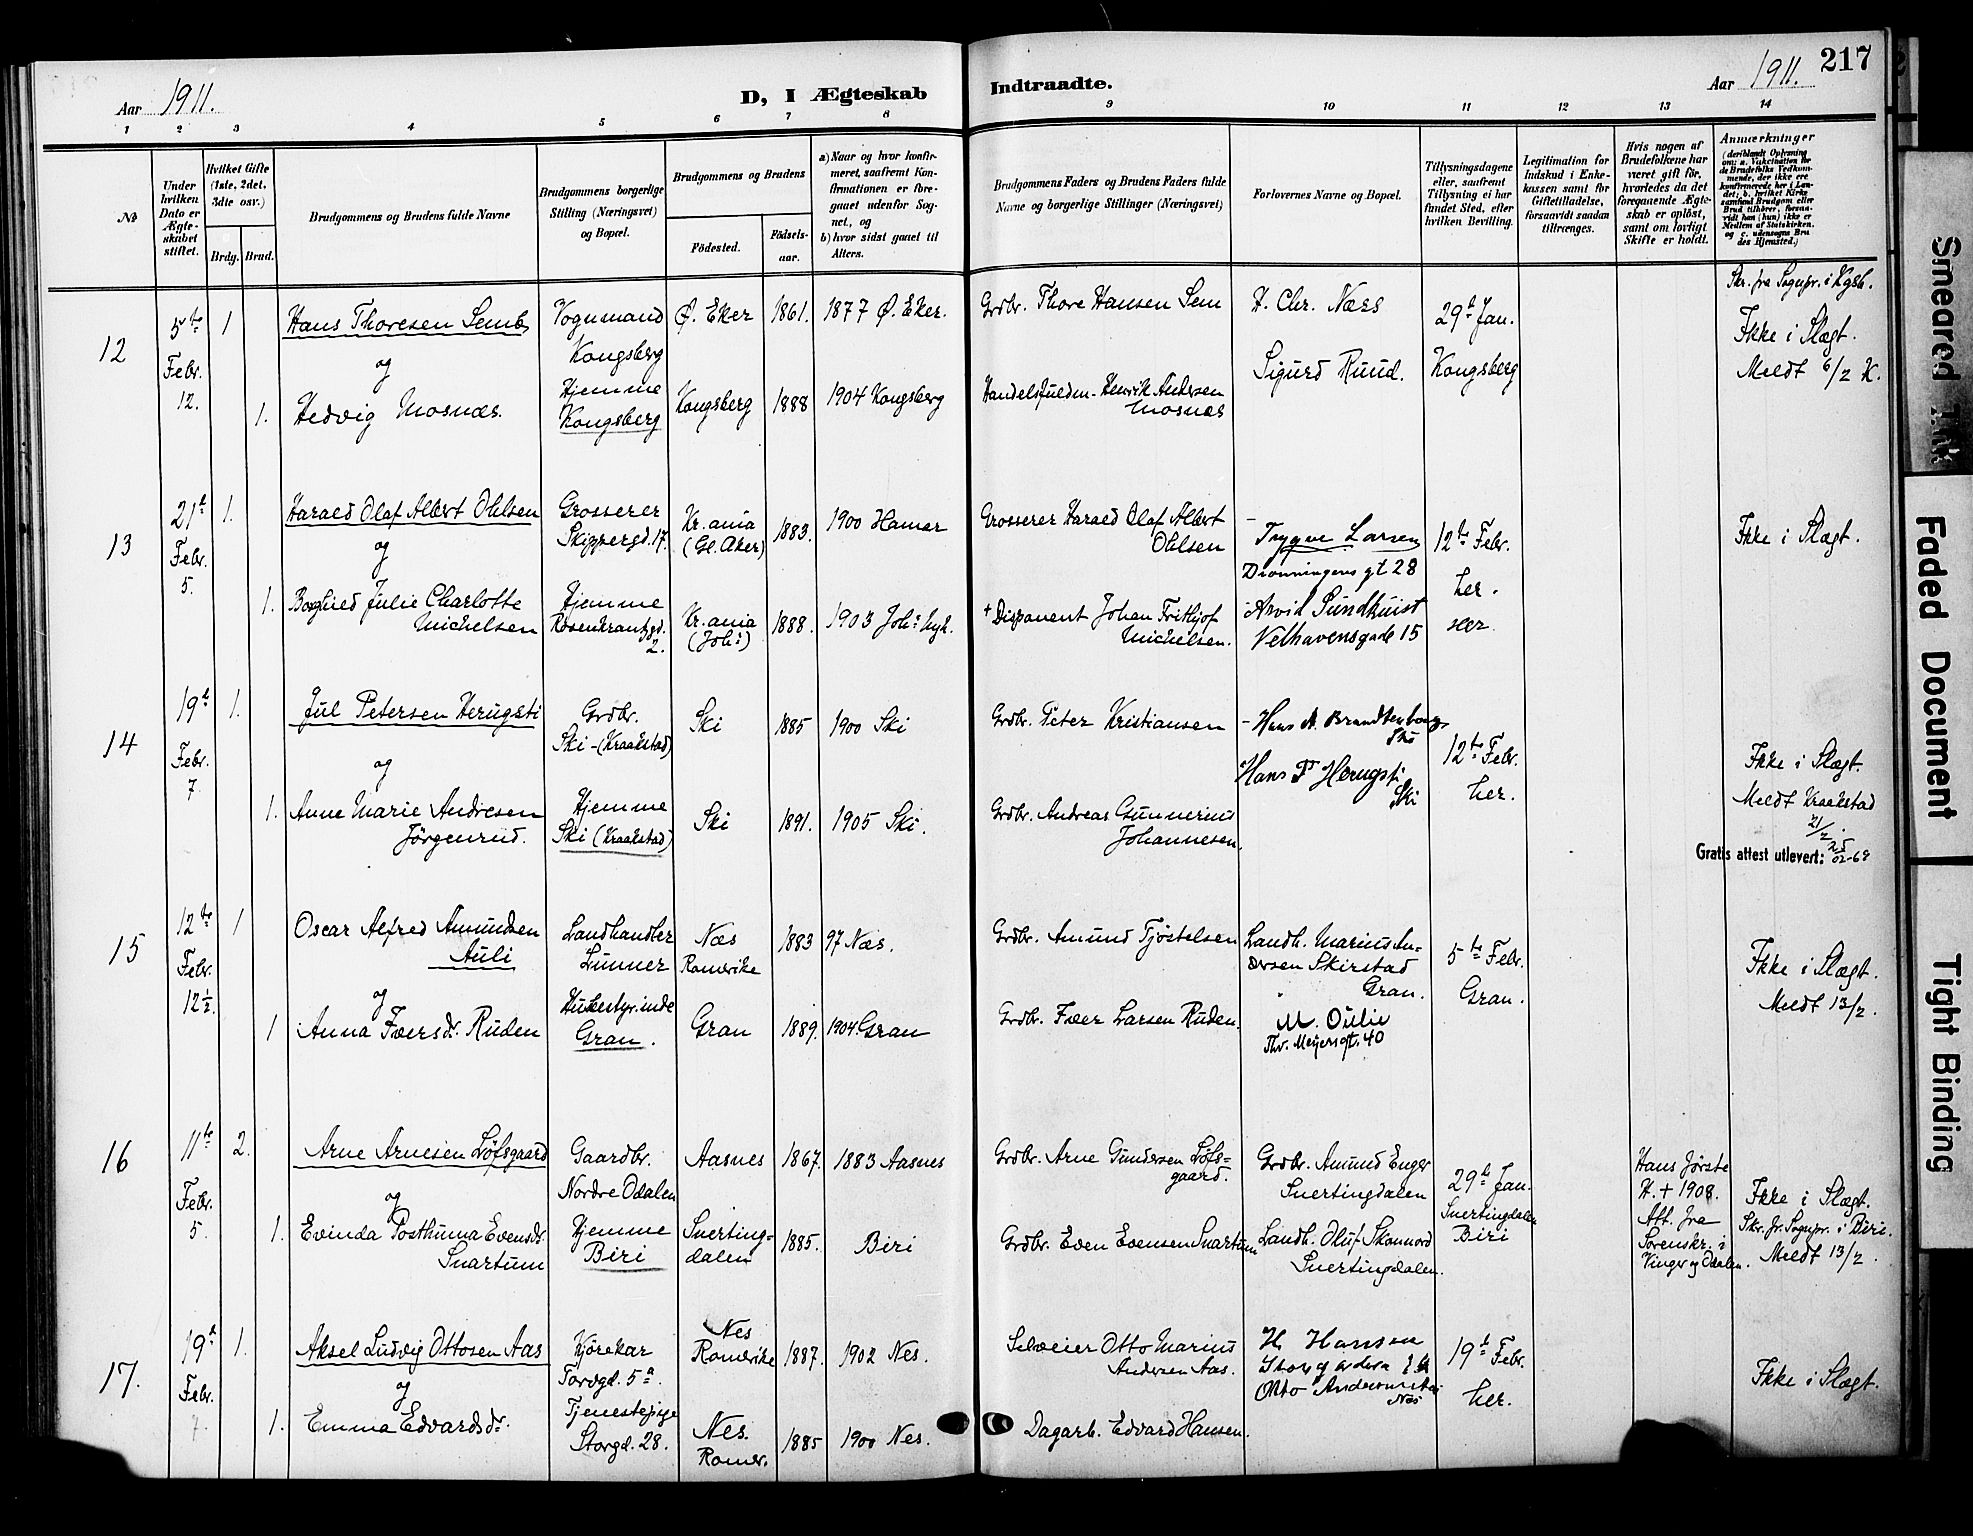 217
Aar 1911.
D, I Ægteskab
Indtraadte.
Aar 1911.
1 2 3 4 5 6 7 8 9 10 11 12 13 14
No
Under hvilken Dato er Ægteskabet stiftet.
Hvilket Gifte (1ste, 2det, 3dte osv.)
Brdg. Brud.
Brudgommens og Brudens fulde Navne
Brudgommens borgerlige Stilling (Næringsvei) og Bopæl.
Brudgommens og Brudens
Fødested.
Fødselsaar.
a) Naar og hvor konfirmeret, saafremt Konfirmationen er foregaaet udenfor Sognet, og
b) hvor sidst gaaet til Alters.
Brudgommens Faders og Brudens Faders fulde Navne og borgerlige Stillinger (Næringsvei)
Forlovernes Navne og Bopæl.
Tillysningsdagene eller, saafremt Tillysning ei har fundet Sted, efter hvilken Bevilling.
Legitimation for Indskud i Enkekassen samt for Giftetilladelse, forsaavidt saadan tiltrænges.
Hvis nogen af Brudefolkene har været gift før, hvorledes da det foregaaende Ægteskab er opløst, samt om lovligt Skifte er holdt.
Anmærkninger
(deriblandt Oplysning om: a. Vakcination for de Brudefolks Vedkommende, der ikke ere konfirmerede her i Landet; b. hvilket Kirkesamfund Brudgom eller Brud tilhører, forsaavidt han (hun) ikke er Medlem af Statskirken, og c. udensogns Brudes Hjemsted.)
12
5te Febr. 12.
1
Hans Thoresen Semb
Vognmand Kongsberg
Ø. Eker
1861.
1877 Ø. Eker.
Grdbr. Thore Hansen Sem
H. Chr. Næss
Sigurd Ruud.
29d Jan. Kongsberg
Skr. fra Sognpr. i Kgsb.
Ikke i Slægt.
Meldt 6/2 K.
og
1.
Hedvig Mosnæs.
Hjemme Kongsberg
Kongsberg
1888
1904 Kongsberg
Handelsfuldm. Henrik Andersen Mosnæs
13
21d Febr. 5.
1.
Harald Olaf Albert Ohlsen
Grosserer Skippergd. 17.
Kr.ania (Gl. Aker)
1883.
1900 Hamar
Grosserer Harald Olaf Albert Ohlsen
Trygve Larsen
Dronningens gt 28
12te Febr. her.
Ikke i Slægt.
og
1.
Borghild Julie Charlotte Michelsen
Hjemme Rosenkrantzgd. 2.
Kr.ania (Joh:)
1888.
1903 Joh:
+ Disponent Johan Frithjof Michelsen.
Arvid Sundkuist
Velhavensgade 15
her.
14
19d Febr. 7.
1.
Jul Petersen Herugsti
Grdbr. Ski - (Kraakstad)
Ski
1885
1900 Ski
Grdbr. Peter Kristiansen
Hans A. Brandtenborg Ski
Hans P Herugsti Ski
12te Febr. her.
Ikke i Slægt.
Meldt Kraakstad 21/2.
Gratis attest utlevert: 25/02-69
og
1.
Anne Marie Andresen Jörgenrud.
Hjemme Ski (Kraakstad)
Ski
1891.
1905 Ski.
Grdbr. Andreas Gunnerius Johannesen.
15
12te Febr. 12½.
1
Oscar Alfred Amundsen Auli
Landhandler Lunner
Næs Romerike
1883
97 Næs.
Grdbr. Amund Tjöstelsen
Landh. Marius Andersen Skirstad Gran.
M. Oulie
Thv. Meyersgt. 40
5te Febr. Gran.
Ikke i Slægt.
Meldt 13/2.
og
1
Anna Iversdr. Ruden
Husbestyrinde Gran.
Gran
1889.
1904. Gran
Grdb. Iver Larsen Ruden.
16
11te Febr. 5.
2.
Arne Arnesen Löfsgaard
Gaardbr. Nordre Odalen
Aasnes
1867.
1883 Aasnes
Grdbr. Arne Gundersen Löfsgaard.
Grdbr. Amund Enger Snertingdalen
29d Jan. Snertingdalen Biri
Hans förste H. + 1908. Att. fra Sorenskr. i Vinger og Odalen.
Ikke i Slægt.
Skr. fr. Sognpr. i Biri.
Meldt 13/2.
og
1.
Evinda Posthuma Evensdr. Snartum
Hjemme Biri
Snertingdalen
1885.
Biri
Grdbr. Even Evensen Snartum
Landh. Oluf Skonnord Snertingdalen.
17.
19d Febr. 7.
1.
Aksel Ludvig Ottosen Aas
Kjörekar Torvgd. 5a.
Nes Romerike
1887.
1902 Nes.
Selveier Otto Marius Andersen Aas.
H Hansen
Otto Andersen
Nes
19d Febr. her.
Ikke i Slægt.
og
1.
Emma Edvardsdr.
Tjenestepige Storgd. 28.
Nes. Romer.
1885
1900 Nes.
Dagarb. Edvard Hansen.
Smeared Ink
Faded Document
Tight Binding